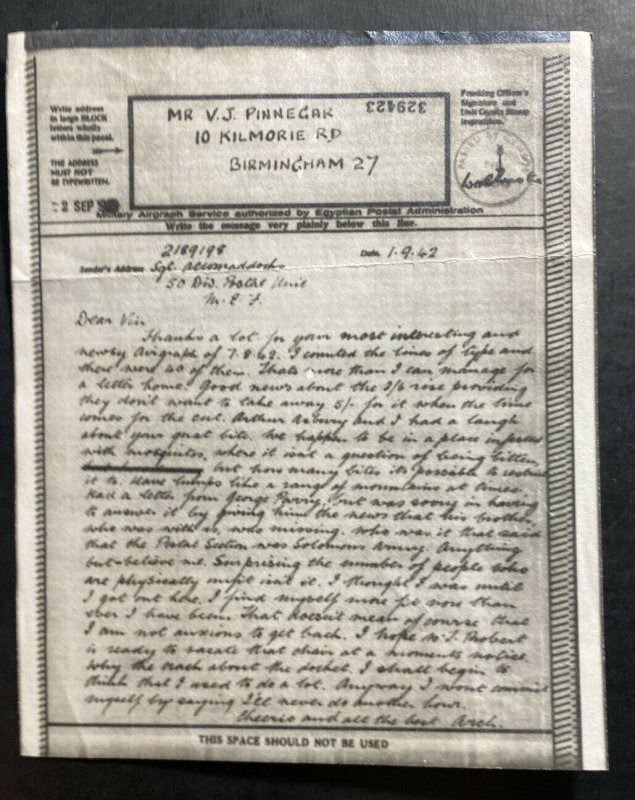 Write address
in large BLOCK
letters wholly
within this panel.
THE ADDRESS
MUST NOT
BE TYPEWRITTEN.
MR V.J. PINNEGAR
329423
10 KILMORIE RD
BIRMINGHAM 27
Franking Officer's
Signature and
Unit Censor Stamp
Impression.
2 SEP
Military Airgraph Service authorized by Egyptian Postal Administration
Write the message very plainly below this line.
2189198
Date. 1.9.42
Sender's Address Sgt.
50 Div. Postal Unit
M. E. F.
Dear Vin
Thanks a lot for your most interesting and
newsy Airgraph of 7.8.42. I counted the lines of type and
there were 40 of them. Thats more than I can manage for
a letter home. Good news about the 3/6 rise providing
they don't want to take away 5/- for it when the time
comes for the cut. Arthur and I had a laugh
about your gnat bite. We happen to be in a place infested
with mosquitos, where it isn't a question of being bitten
but how many bites its possible to
it to. Have lumps like a range of mountains at times.
Had a letter from George but was sorry in having
to answer it by giving him the news that his brother,
who was with us, was missing. Who was it that said
that the Postal Section was Solomons Army. Anything
but - believe me. Surprising the number of people who
are physically unfit isn't it. I thought I was until
I got out here. I find myself more fit now than
ever I have been. That doesn't mean of course that
I am not anxious to get back. I hope Probert
is ready to vacate that chair at a moments notice.
Why the crash about the docket. I shall begin to
think that I used to do a lot. Anyway I wont commit
myself by saying I'll never do another hour.
Cheerio and all the best. Arch.
THIS SPACE SHOULD NOT BE USED